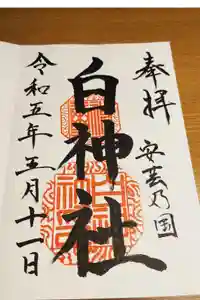 奉拝
安芸乃国
白神社
令和五年三月十一日